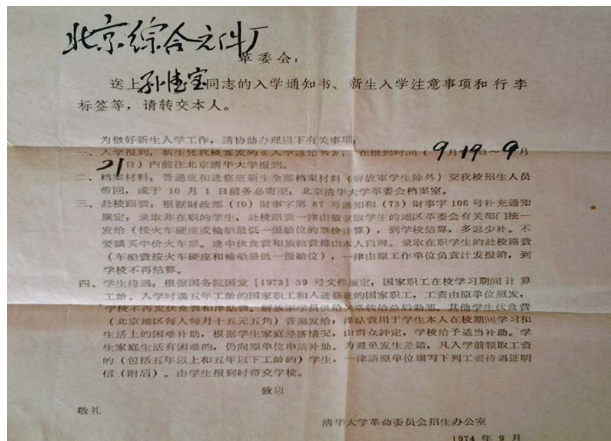 北京综合元件厂
革委会：
送上孙德宝同志的入学通知书、新生入学注意事项和行李
标签等，请转交本人。
为做好新生入学工作，请协助办理以下有关事项：
一、入学报到，新生凭我校签发的《入学通知书》，在报到时间（9月19日—9月
21日）内前往北京清华大学报到。
二、档案材料：普通班和进修班新生全部档案材料（解放军学生除外）交我校招生人员
带回，或于10月1日前务必寄至：北京清华大学革委会档案室。
三、赴校路费：根据财政部（70）财事字第87号通知和（73）财事字106号补充通知
规定：录取非在职的学生，赴校路费一律由被录取学生的地区革委会有关部门统一
发给（按火车硬座或轮船最低一级舱位的票价计算），到学校结算，多退少补。不
要购买半价火车票。途中伙食费和旅馆费都由本人自理。录取在职学生的赴校路费
（车船费按火车硬座和轮船最低一级舱位），一律由原工作单位负责计发报销，到
学校不再结算。
四、学生待遇：根据国务院国发［1973］39号文件规定，国家职工在校学习期间计算
工龄。入学时满五年工龄的国家职工和入进修班的国家职工，工资由原单位照发，
学校不再发伙食费和津贴费。解放军学员供给关系转给总后勤部。其他学生伙食费
（北京地区每人每月十五元五角）普遍发给，津贴费用于学生本人在校期间学习和
生活上的困难补助，根据学生家庭经济情况，由群众评定，学校给予适当补助。学
生家庭生活有困难的，仍向原单位申请补助。为避免发生差错，凡入学前领取工资
的（包括五年以上和五年以下工龄的）学生，一律请原单位填写下列工资待遇证明
信（附后）。由学生报到时带交学校。
致以
敬礼
清华大学革命委员会招生办公室
1974年9月